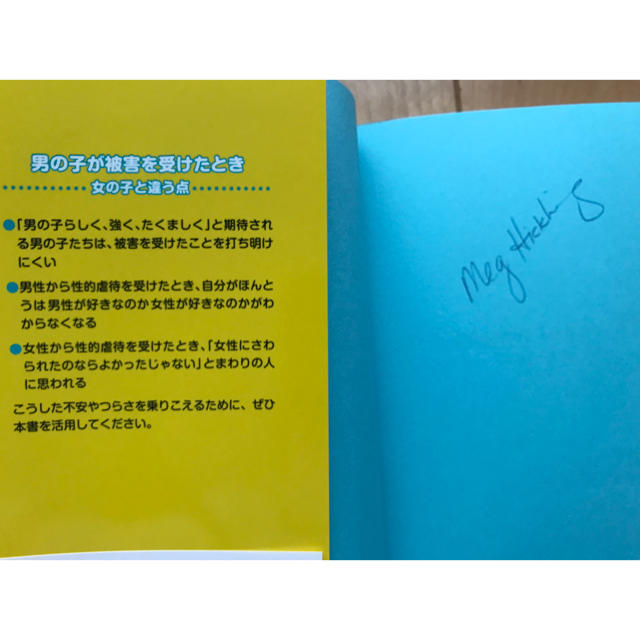 男の子が被害を受けたとき
女の子と違う点
●「男の子らしく、強く、たくましく」と期待され
る男の子たちは、被害を受けたことを打ち明け
にくい
●男性から性的虐待を受けたとき、自分がほんと
うは男性が好きなのか女性が好きなのかがわ
からなくなる
●女性から性的虐待を受けたとき、「女性にさわ
られたのならよかったじゃない」とまわりの人
に思われる
こうした不安やつらさを乗りこえるために、ぜひ
本書を活用してください。
Meg Hickling